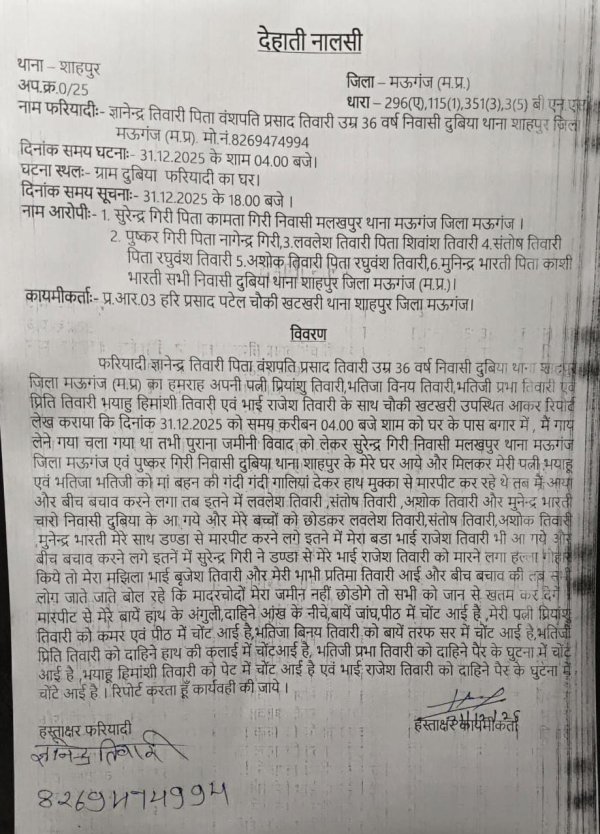 देहाती नालसी
थाना – शाहपुर
अप.क्र.0/25
जिला – मऊगंज (म.प्र.)
धारा – 296(ए),115(1),351(3),3(5) बी एन एस
नाम फरियादीः- ज्ञानेन्द्र तिवारी पिता वंशपति प्रसाद तिवारी उम्र 36 वर्ष निवासी दुबिया थाना शाहपुर जिला
मऊगंज (म.प्र.) मो.नं.8269474994
दिनांक समय घटनाः- 31.12.2025 के शाम 04.00 बजे।
घटना स्थलः- ग्राम दुबिया फरियादी का घर।
दिनांक समय सूचनाः- 31.12.2025 के 18.00 बजे ।
नाम आरोपीः- 1. सुरेन्द्र गिरी पिता कामता गिरी निवासी मलखपुर थाना मऊगंज जिला मऊगंज ।
2. पुष्कर गिरी पिता नागेन्द्र गिरी,3.लवलेश तिवारी पिता शिवांश तिवारी 4.संतोष तिवारी
पिता रघुवंश तिवारी 5.अशोक तिवारी पिता रघुवंश तिवारी,6.मुनिन्द्र भारती पिता काशी
भारती सभी निवासी दुबिया थाना शाहपुर जिला मऊगंज (म.प्र.)।
कायमीकर्ताः- प्र.आर.03 हरि प्रसाद पटेल चौकी खटखरी थाना शाहपुर जिला मऊगंज।
विवरण
फरियादी ज्ञानेन्द्र तिवारी पिता वंशपति प्रसाद तिवारी उम्र 36 वर्ष निवासी दुबिया थाना शाहपुर
जिला मऊगंज (म.प्र) का हमराह अपनी पत्नी प्रियांशु तिवारी,भतिजा विनय तिवारी,भतिजी प्रभा तिवारी एवं
प्रिति तिवारी भयाहु हिमांशी तिवारी एवं भाई राजेश तिवारी के साथ चौकी खटखरी उपस्थित आकर रिपोर्ट
लेख कराया कि दिनांक 31.12.2025 को समय करीबन 04.00 बजे शाम को घर के पास बगार में , मैं गाय
लेने गया चला गया था तभी पुराना जमीनी विवाद को लेकर सुरेन्द्र गिरी निवासी मलखपुर थाना मऊगंज
जिला मऊगंज एवं पुष्कर गिरी निवासी दुबिया थाना शाहपुर के मेरे घर आये और मिलकर मेरी पत्नी भयाहू
एवं भतिजा भतिजी को मां बहन की गंदी गंदी गालियां देकर हाथ मुक्का से मारपीट कर रहे थे तब मैं आया
और बीच बचाव करने लगा तब इतने में लवलेश तिवारी ,संतोष तिवारी ,अशोक तिवारी और मुनेन्द्र भारती
चारो निवासी दुबिया के आ गये और मेरे बच्चों को छोडकर लवलेश तिवारी,संतोष तिवारी,अशोक तिवारी
,मुनेन्द्र भारती मेरे साथ डण्डा से मारपीट करने लगे इतने में मेरा बडा भाई राजेश तिवारी भी आ गये और
बीच बचाव करने लगे इतनें में सुरेन्द्र गिरी ने डण्डा से मेरे भाई राजेश तिवारी को मारने लगा हल्ला गोहार
किये तो मेरा मझिला भाई बृजेश तिवारी और मेरी भाभी प्रतिमा तिवारी आई और बीच बचाव की तब सभी
लोग जाते जाते बोल रहे कि मादरचोदों मेरा जमीन नहीं छोडोगे तो सभी को जान से खतम कर देगें ।
मारपीट से मेरे बायें हाथ के अंगुली,दाहिने आंख के नीचे,बायें जांघ,पीठ में चोंट आई है ,मेरी पत्नी प्रियांशु
तिवारी को कमर एवं पीठ में चोंट आई है,भतिजा बिनय तिवारी को बायें तरफ सर में चोंट आई है,भतिजी
प्रिति तिवारी को दाहिने हाथ की कलाई में चोंटआई है, भतिजी प्रभा तिवारी को दाहिने पैर के घुटना में चोंट
आई है ,भयाहु हिमांशी तिवारी को पेट में चोंट आई है एवं भाई राजेश तिवारी को दाहिने पैर के घुटना में
चोंटे आई है । रिपोर्ट करता हूँ कार्यवही की जाये ।
हस्ताक्षर फरियादी
हस्ताक्षर कायमीकर्ता
ज्ञानेन्द्र तिवारी
8269474994